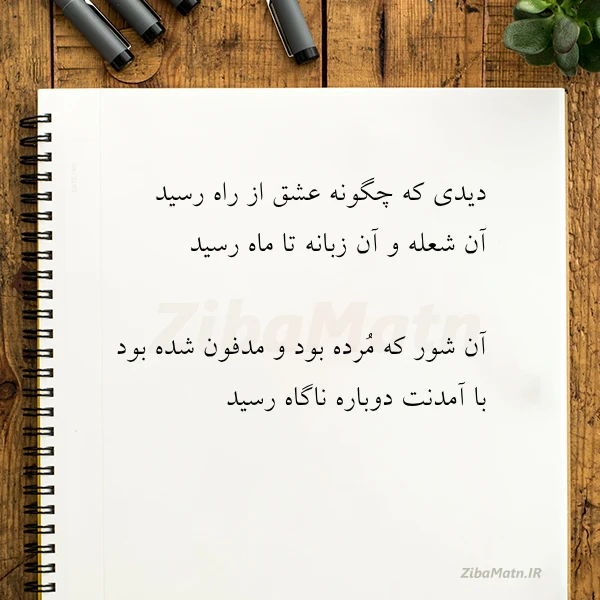 دیدی که چگونه عشق از راه رسید
آن شعله و آن زبانه تا ماه رسید
ZibaMatn
آن شور که مُرده بود و مدفون شده بود
با آمدنت دوباره ناگاه رسید
ZibaMatn.IR